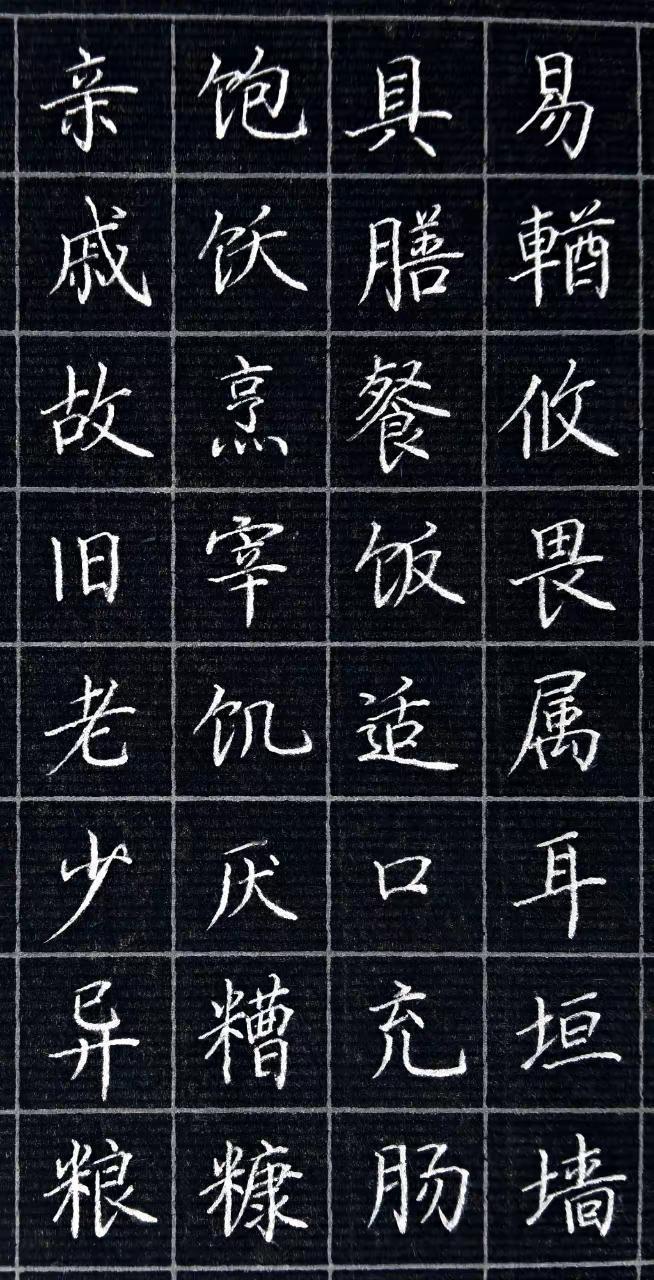 易輶攸畏属耳垣墙
具膳餐饭适口充肠
饱饫烹宰饥厌糟糠
亲戚故旧老少异粮